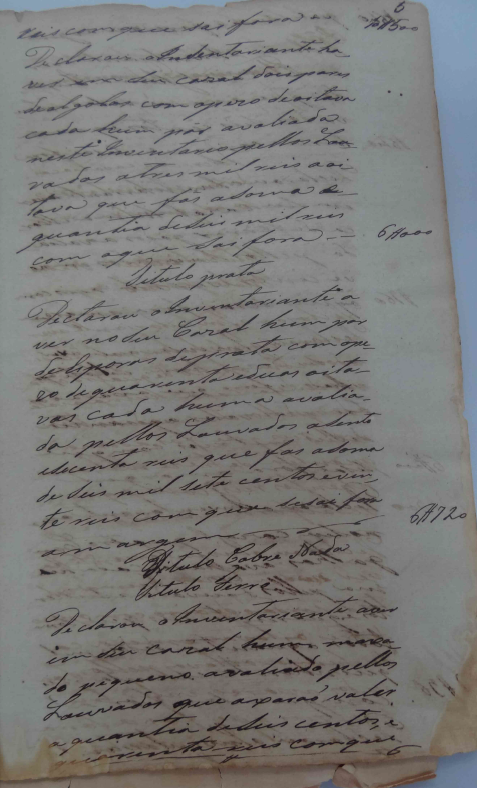 6
reis com que sai fora
Declarou o Inventariante ha
ver em seu cazal dois pares
de argolas com o pezo de oitava
cada hum par avaliada
neste Inventario pellos Lou
vados a tres mil reis a oi
tava que fas a soma e
quantia de seis mil reis
com a que sai fora 6#000
Titulo prata
Declarou o Inventariante a
ver no seu Cazal hum par
de Esporas de prata com o pe
zo de quarenta e duas oita
vas cada huma avalia
da pellos Louvados a cento
e secenta reis que fas a soma
de seis mil sete centos e vin
te reis com que se sai fora
a margem 6#720
Titulo Cobre Nada
Titulo Ferro
Declarou o Inventariante aver
em seu cazal hum maxa
do pequeno avaliado pellos
Louvados que axarão valer
a quantia de seis centos e
quarenta reis com que